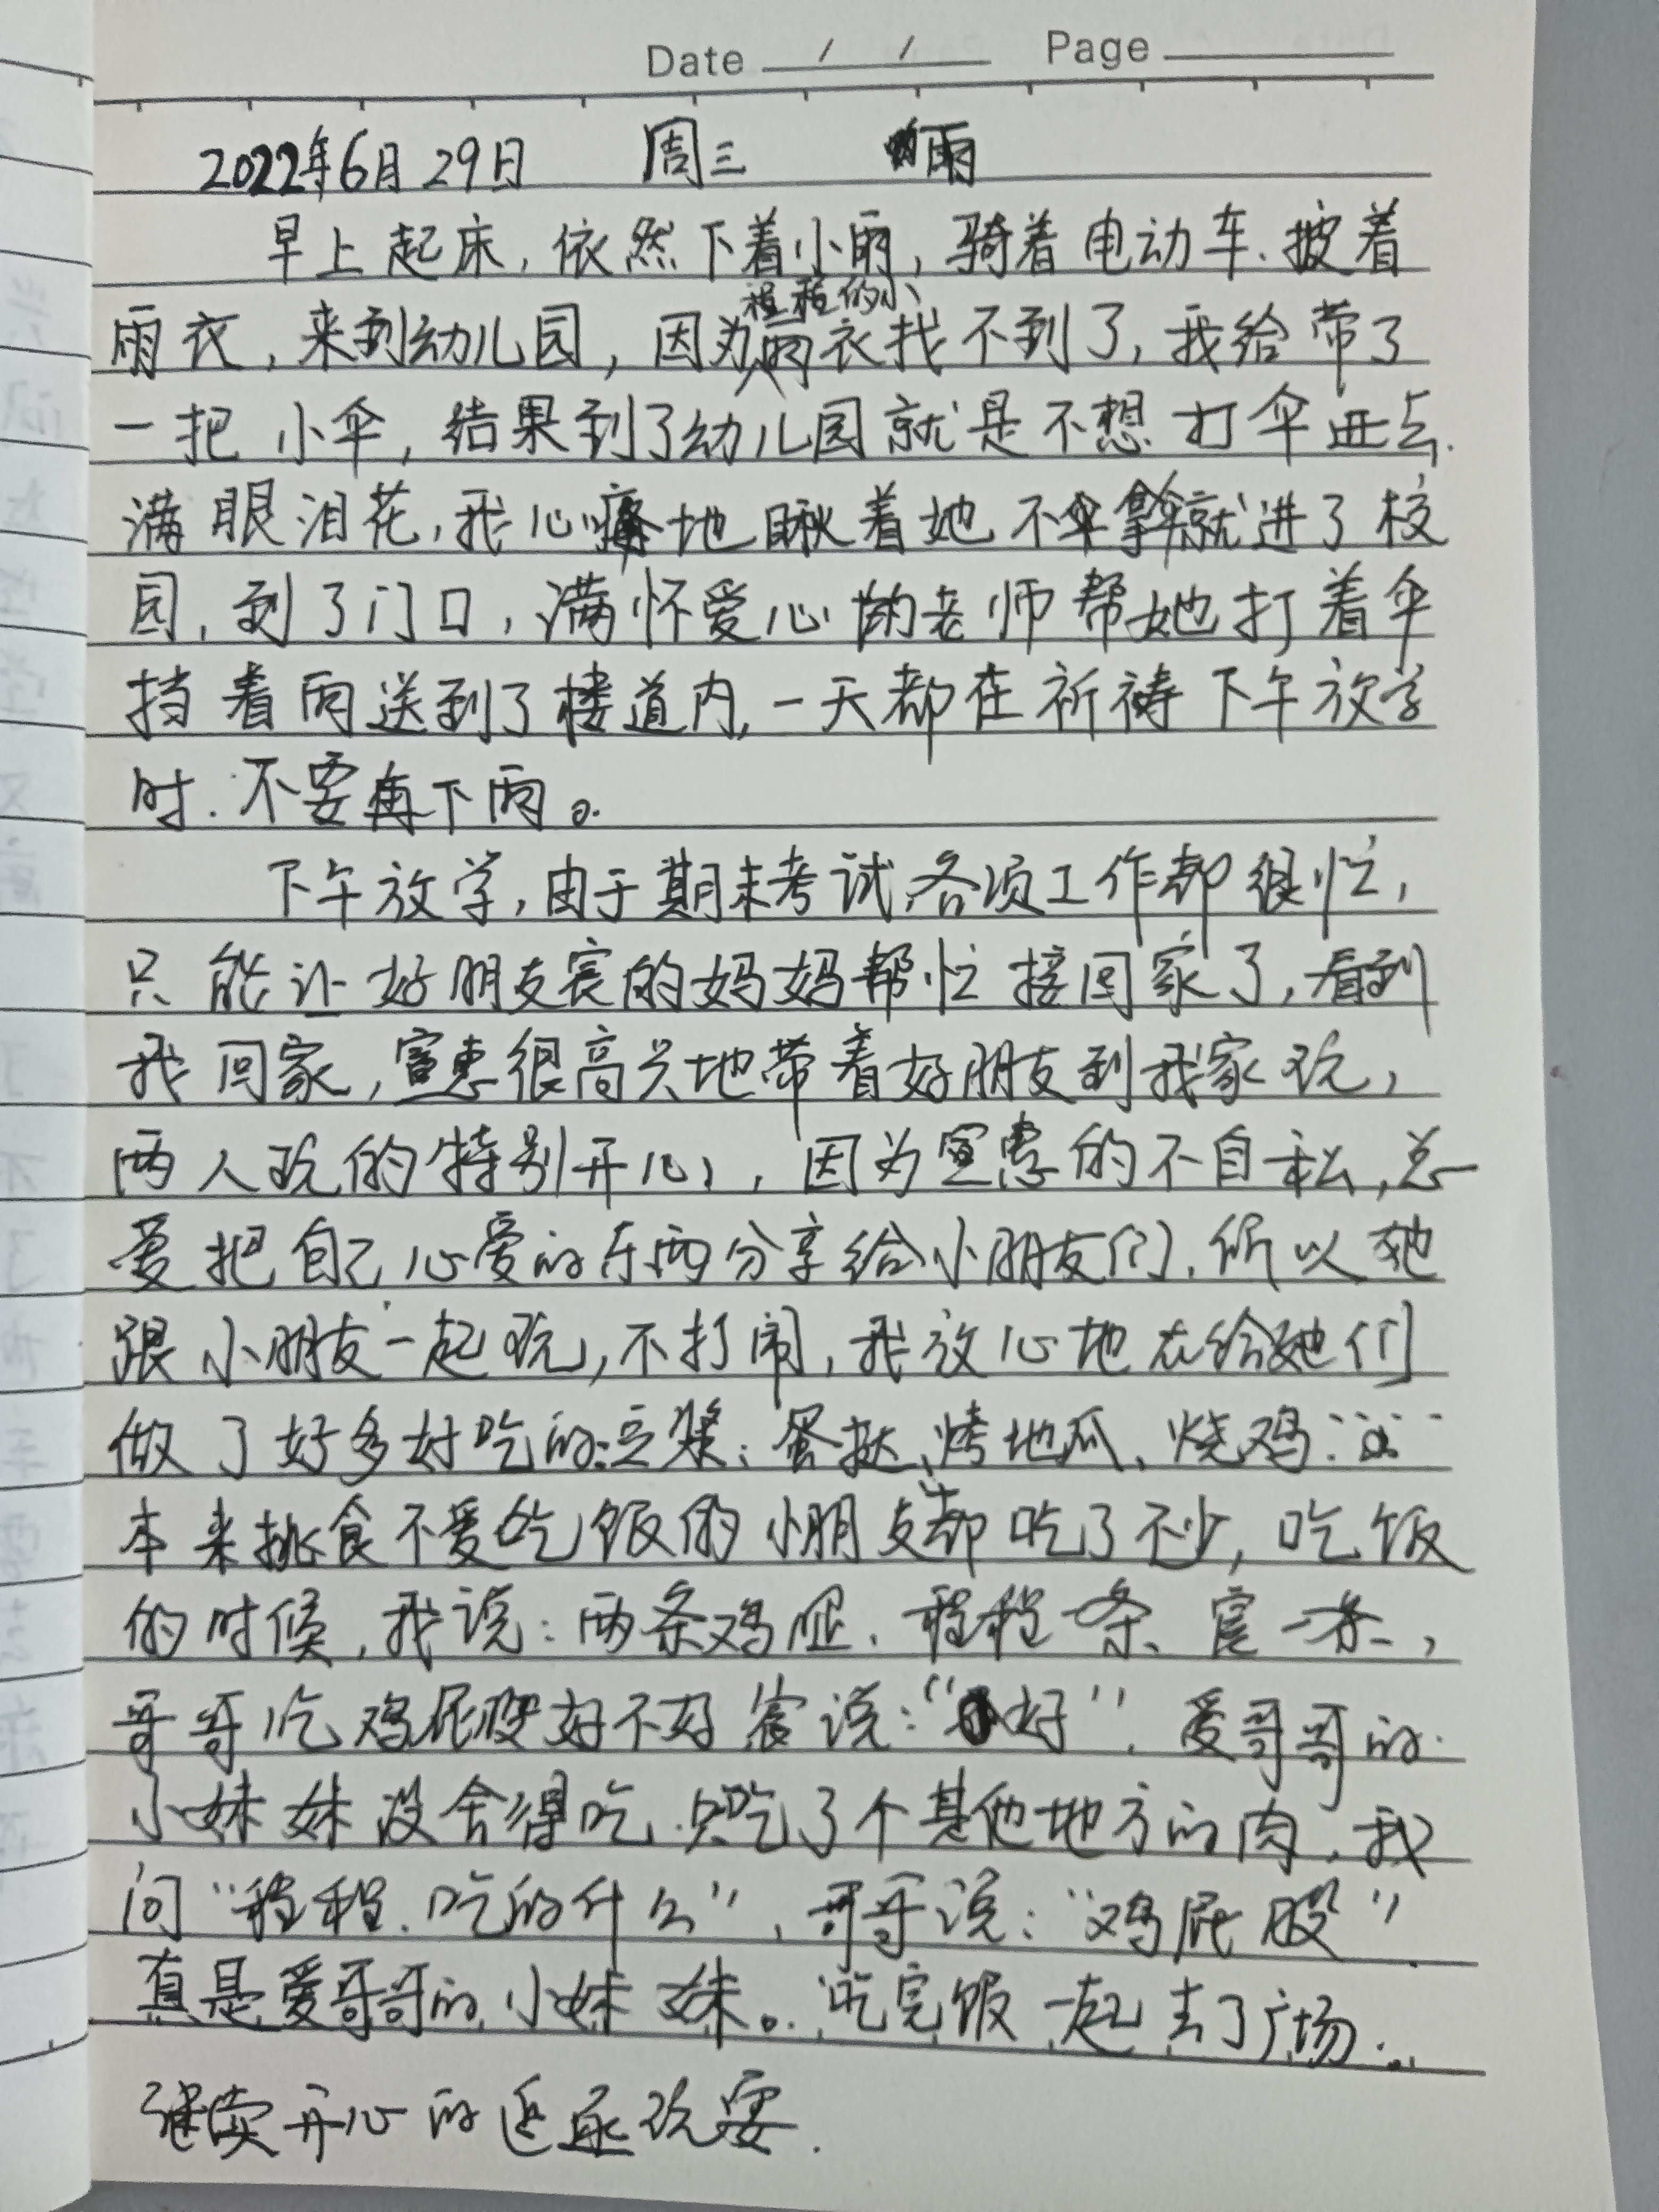 Date / / Page
2022年6月29日 周三 雨
早上起床,依然下着小雨,骑着电动车、披着
程程的小
雨衣,来到幼儿园,因为雨衣找不到了,我给带了
一把小伞,结果到了幼儿园就是不想打伞进去.
满眼泪花,我心疼地瞅着她不拿伞就进了校
园,到了门口,满怀爱心的老师帮她打着伞
挡着雨送到了楼道内,一天都在祈祷下午放学
时.不要再下雨。
下午放学,由于期末考试,各项工作都很忙,
只能让好朋友宸的妈妈帮忙接回家了,看到
我回家,很高兴地带着好朋友到我家玩,
两人玩的特别开心,因为的不自私,总
爱把自己心爱的东西分享给小朋友们.所以她
跟小朋友一起玩,不打闹,我放心地在给她们
做了好多好吃的:豆浆、蛋挞、烤地瓜、烧鸡……
本来挑食不爱吃饭的小朋友都吃了不少,吃饭
的时候,我说:两条鸡腿、程程一条、宸一条,
哥哥吃鸡屁股好不好宸说:“好”.爱哥哥的
小妹妹没舍得吃.只吃了个其他地方的肉,我
问“程程.吃的什么”,哥哥说:“鸡屁股”
真是爱哥哥的小妹妹。吃完饭一起去了广场.
继续开心的追逐玩耍.